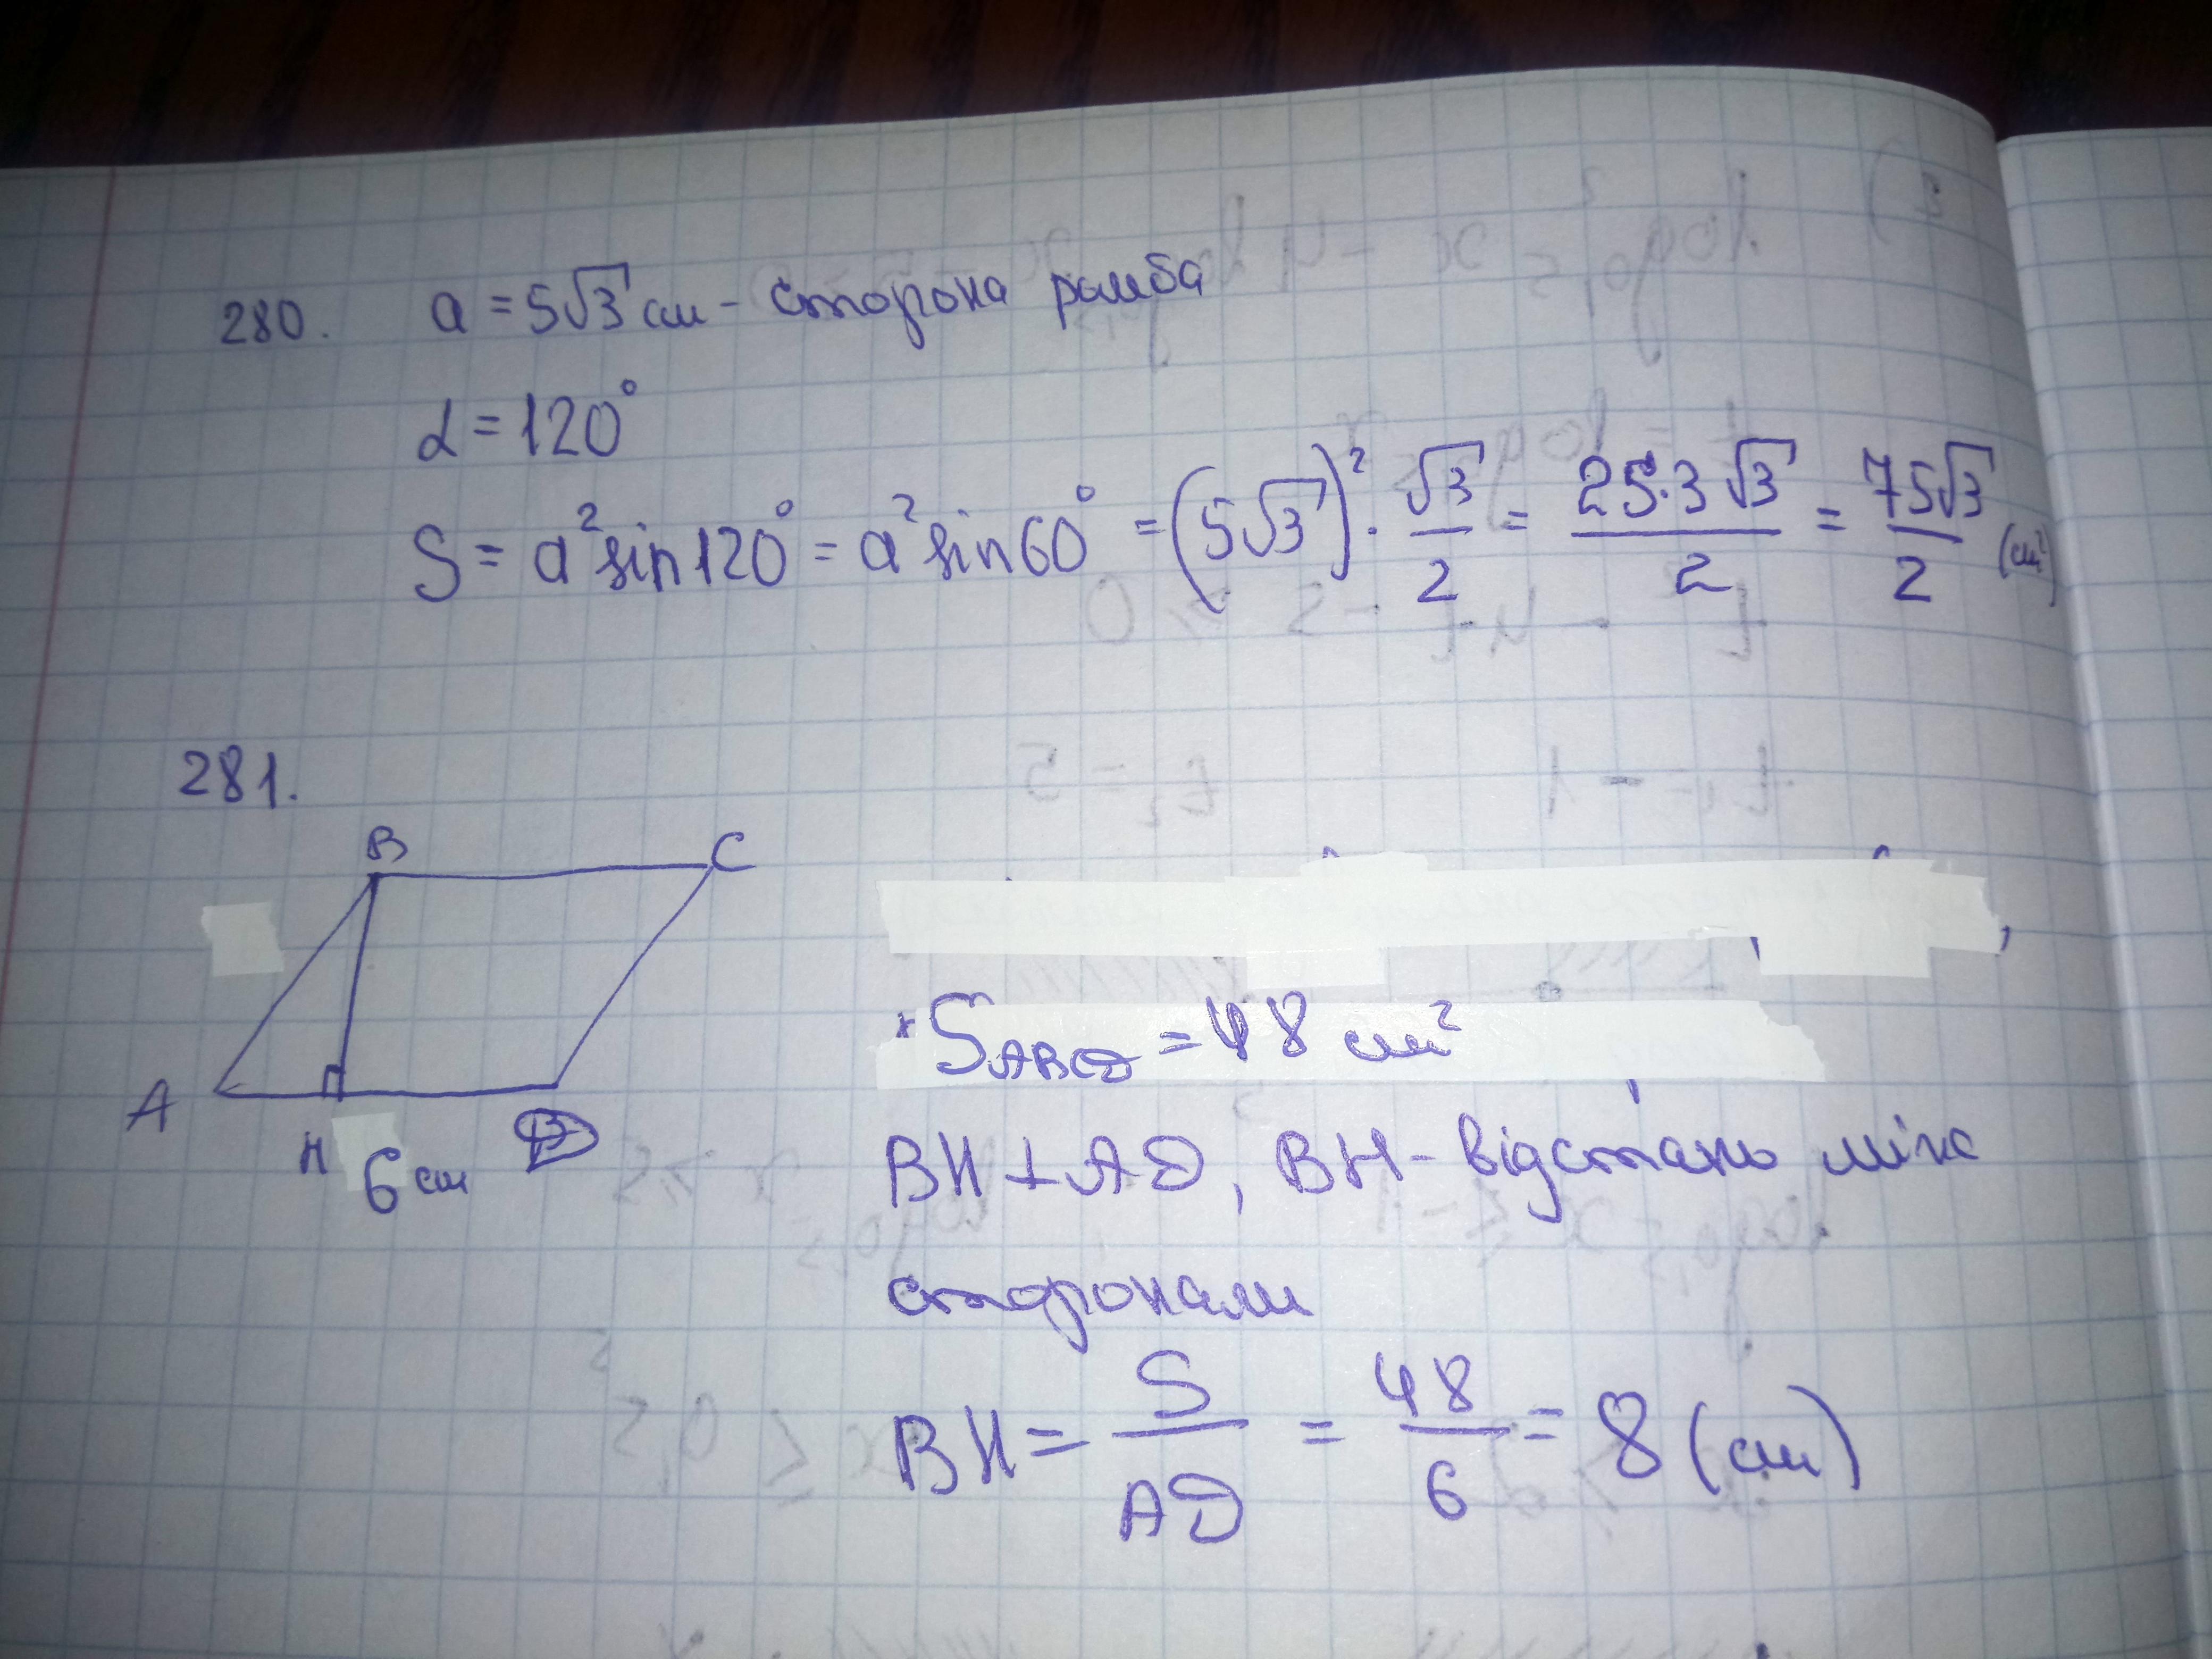 280. a = 5√3 см - сторона ромба
α = 120°
S = a² sin 120° = a² sin 60° = (5√3)² · √3/2 = 25·3√3/2 = 75√3/2 (см²)
281.
B C
A H 6 см D
S ABCD = 48 см²
BH ⊥ AD, BH - відстань між
сторонами
BH = S/AD = 48/6 = 8 (см)